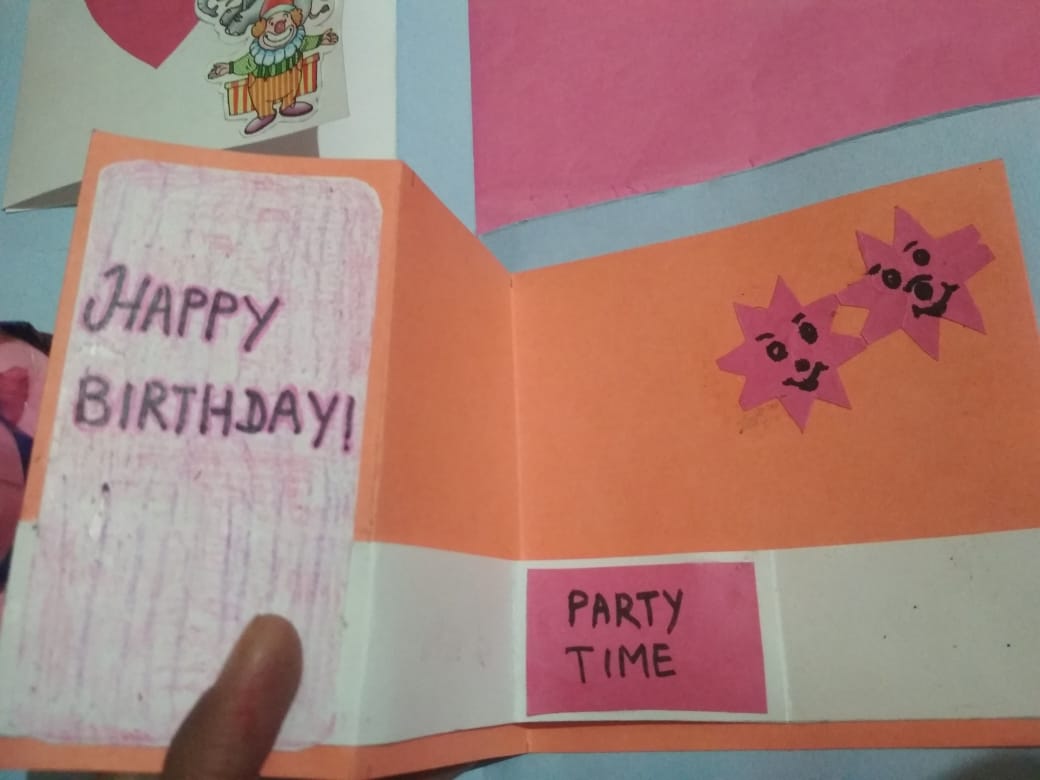 HAPPY
BIRTHDAY!
PARTY
TIME